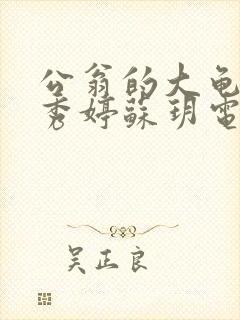 公翁的大龟
秀婷蘇玥電
吴正良